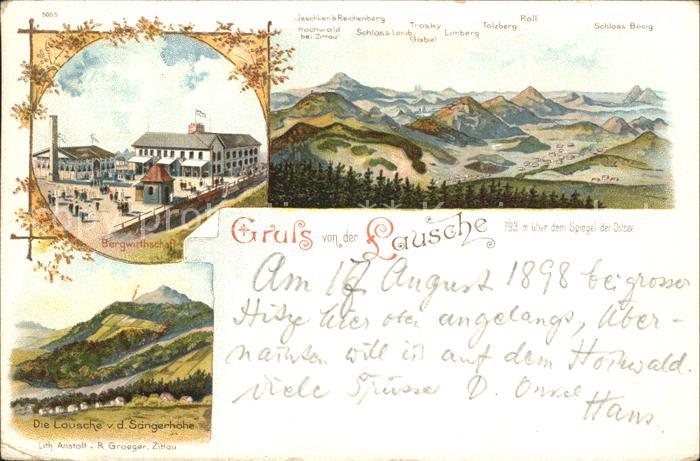 5055
Jeschken b. Reichenberg
Hochwald bei Zittau
Schloss Lemb.
Trosky
Gabel
Limberg
Tolzberg
Roll
Schloss Bösig
Bergwirthschaft
Gruss von der Lausche 793 m. über dem Spiegel der Ostsee
Am 17 August 1898 bei grosser
Hitze hier oben angelangt, Über-
nachten will ich auf dem Hochwald.
Viele Grüsse D. Onkel
Hans.
Die Lausche v. d. Sängerhöhe
Lith. Anstalt v. R. Graeger, Zittau